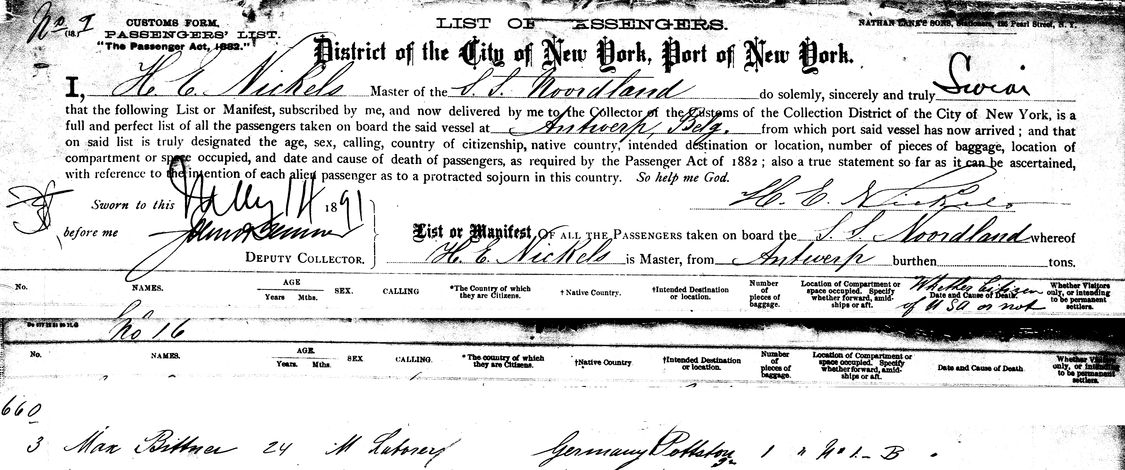 No 9 (18.) CUSTOMS FORM. LIST OF PASSENGERS. NATHAN LANE'S SONS, Stationers, Pearl Street, N. Y.
PASSENGERS' LIST.
"The Passenger Act, 1882."
District of the City of New York, Port of New York.
I, H. E. Nickels Master of the S. S. Noordland do solemnly, sincerely and truly Swear
that the following List or Manifest, subscribed by me, and now delivered by me to the Collector of the Customs of the Collection District of the City of New York, is a
full and perfect list of all the passengers taken on board the said vessel at Antwerp, Belg. from which port said vessel has now arrived ; and that
on said list is truly designated the age, sex, calling, country of citizenship, native country, intended destination or location, number of pieces of baggage, location of
compartment or space occupied, and date and cause of death of passengers, as required by the Passenger Act of 1882 ; also a true statement so far as it can be ascertained,
with reference to the intention of each alien passenger as to a protracted sojourn in this country. So help me God.
H. E. Nickels
Sworn to this 14 1891
before me
List or Manifest, OF ALL THE PASSENGERS taken on board the S. S. Noordland whereof
DEPUTY COLLECTOR.
H. E. Nickels is Master, from Antwerp burthen tons.
No. NAMES. AGE Years Mths. SEX. CALLING *The Country of which they are Citizens. † Native Country. †Intended Destination or location. Number of pieces of baggage. Location of Compartment or space occupied. Specify whether forward, amidships or aft. Date and Cause of Death. Whether Visitors only, or intending to be permanent settlers.
Whether Citizen of USA or not
No 16
No. NAMES. AGE. Years. Mths. SEX CALLING. *The country of which they are Citizens. †Native Country †Intended Destination or location. Number of pieces of baggage. Location of Compartment or space occupied. Specify whether forward, amidships or aft. Date and Cause of Death Whether Visitors only, or intending to be permanent settlers.
660
3 Max Bittner 24 M Laborer Germany Pottstown 1 " No 1 - B